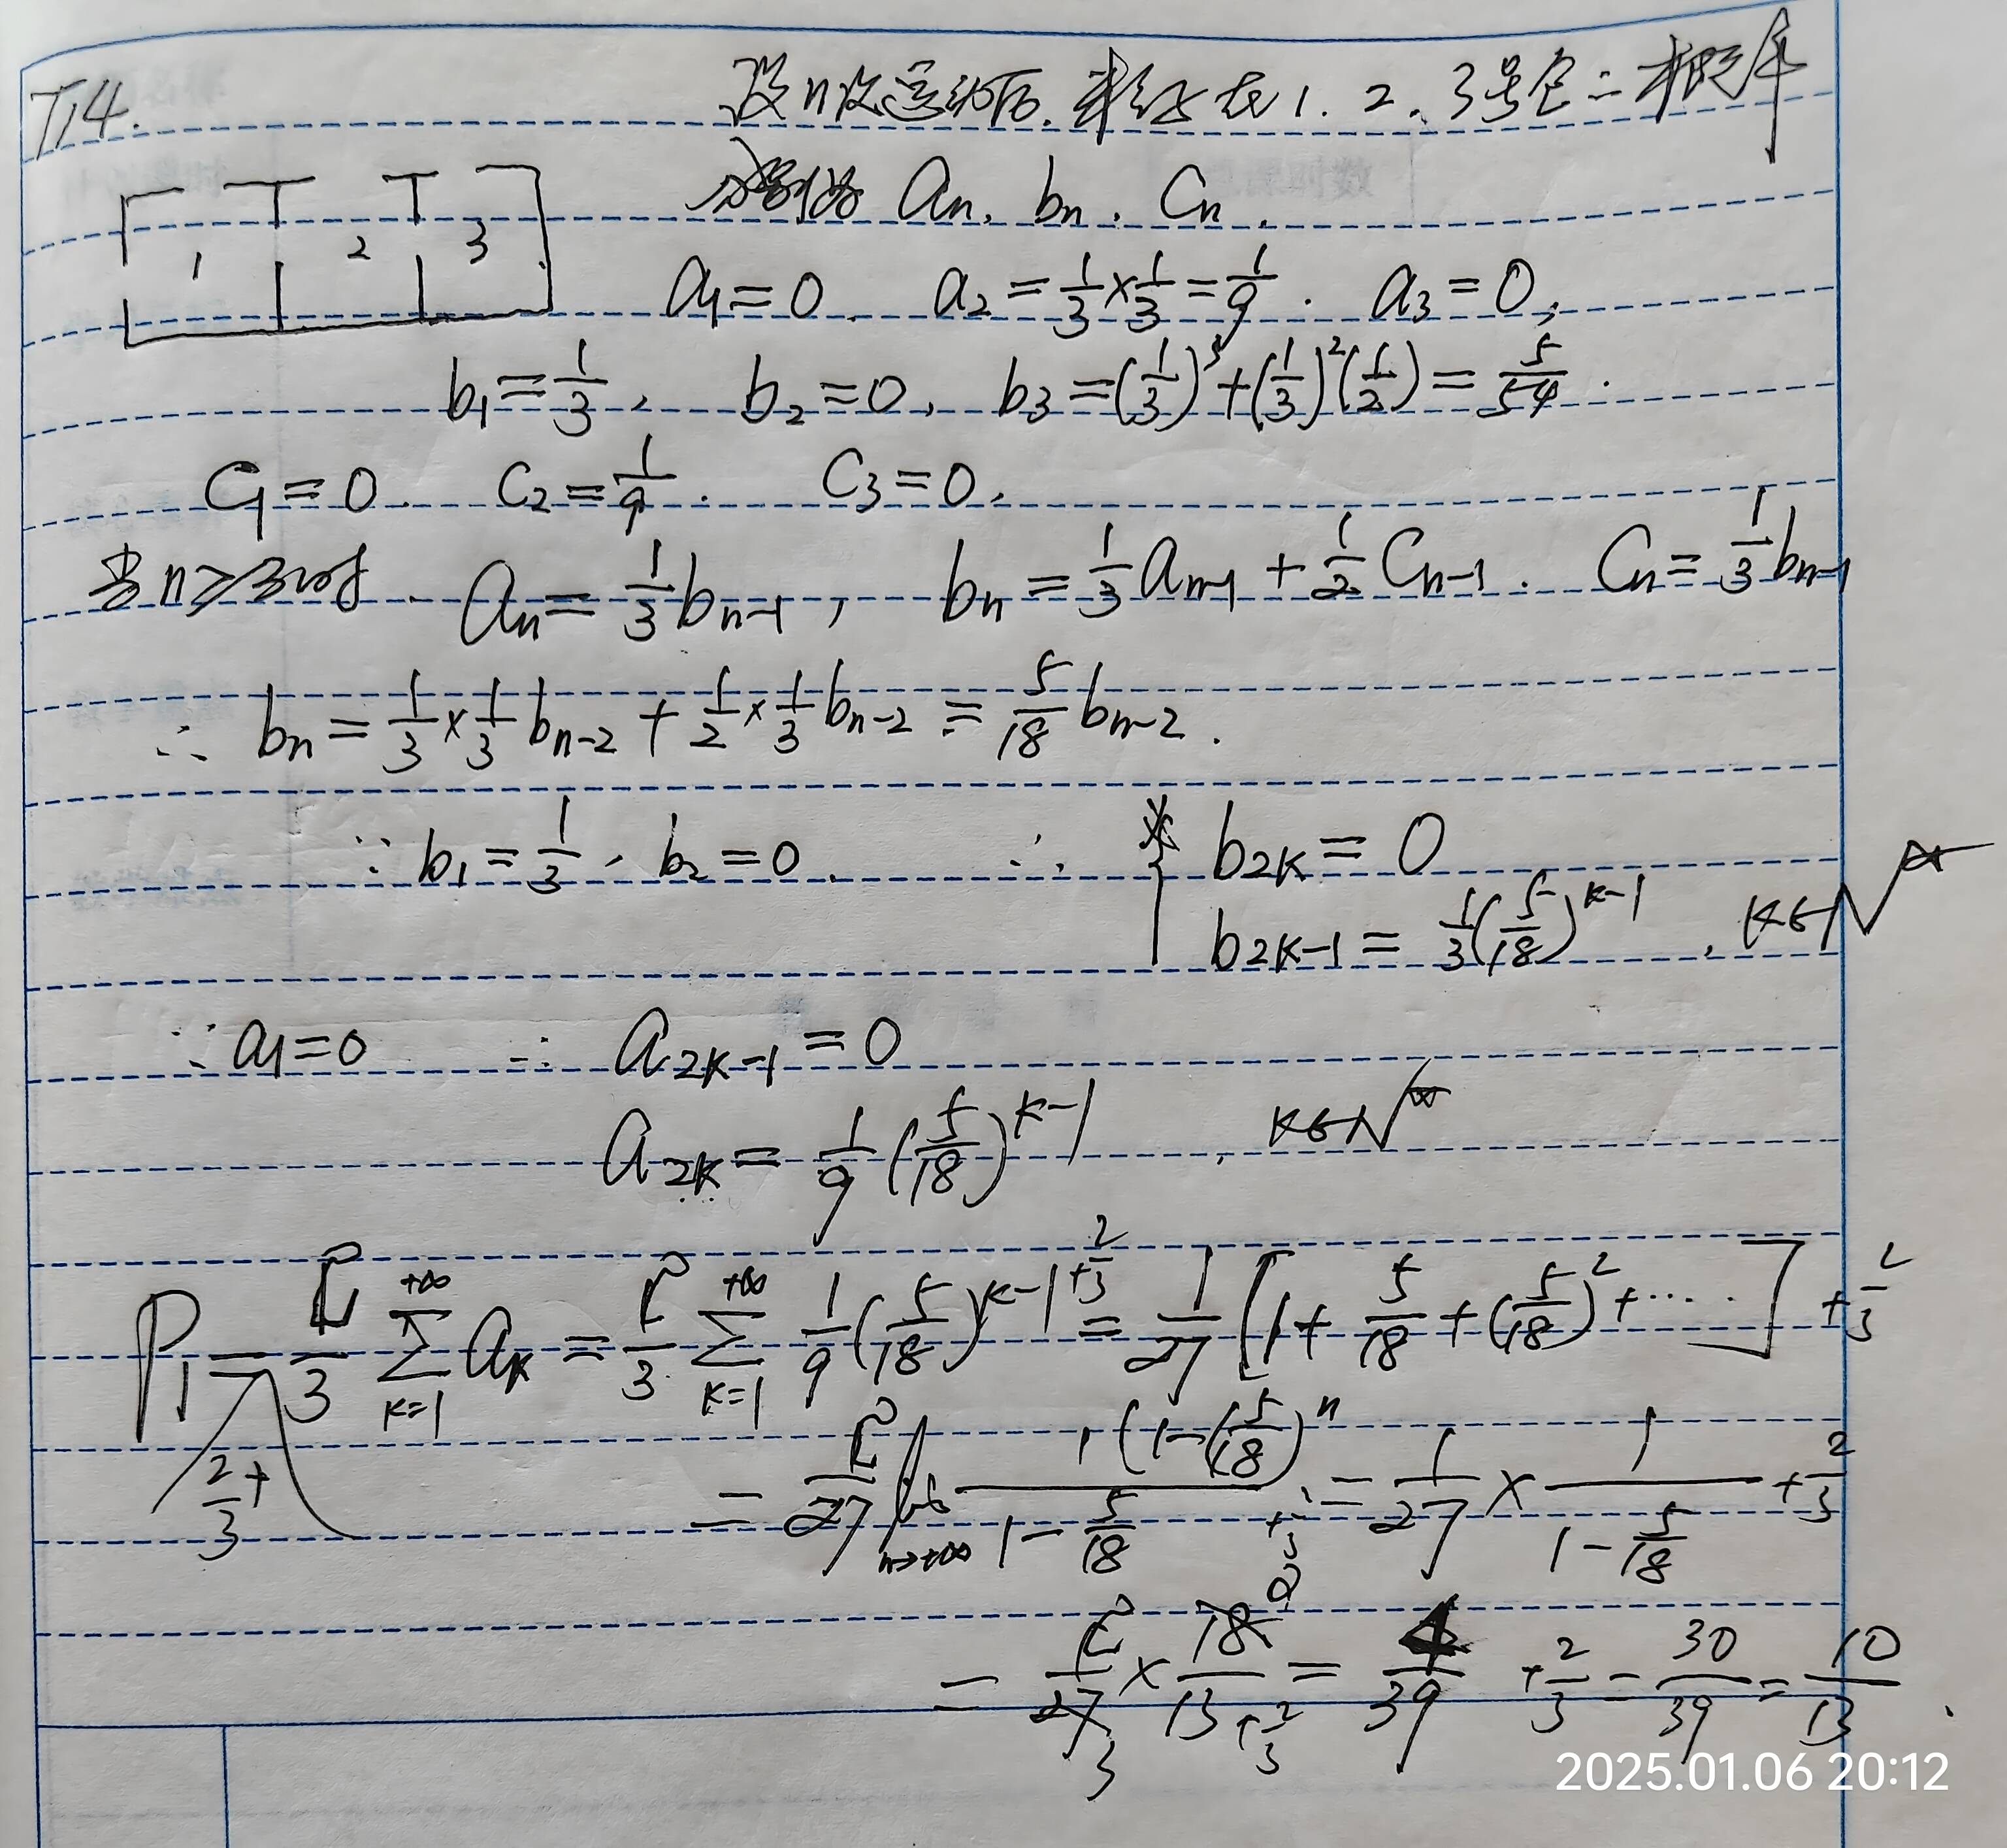 T14.
设n次运动后.粒子在1.2.3号仓二概率
分别为 an. bn. Cn.
1 2 3
a1=0. a2=1/3×1/3=1/9. a3=0,
b1=1/3, b2=0, b3=(1/3)^3+(1/3)^2(1/2)=5/54.
C1=0. C2=1/9. C3=0.
当n≥3时. an=1/3 bn-1, bn=1/3 an-1+1/2 Cn-1. Cn=1/3 bn-1
∴ bn=1/3×1/3 bn-2+1/2×1/3 bn-2=5/18 bn-2.
∵ b1=1/3, b2=0. ∴ { b2k=0
b2k-1=1/3(5/18)^k-1, k∈N*
∵ a1=0 ∴ a2k-1=0
a2k=1/9(5/18)^k-1, k∈N*
P1=2/3+1/3 ∑ k=1 +∞ ak=1/3 ∑ k=1 +∞ 1/9(5/18)^k-1+2/3=1/27[1+5/18+(5/18)^2+……]+2/3
=1/27 lim n→+∞ 1(1-(5/18)^n)/1-5/18+2/3=1/27×1/1-5/18+2/3
=1/27×18/13+2/3=4/39+2/3=30/39=10/13.
2025.01.06 20:12